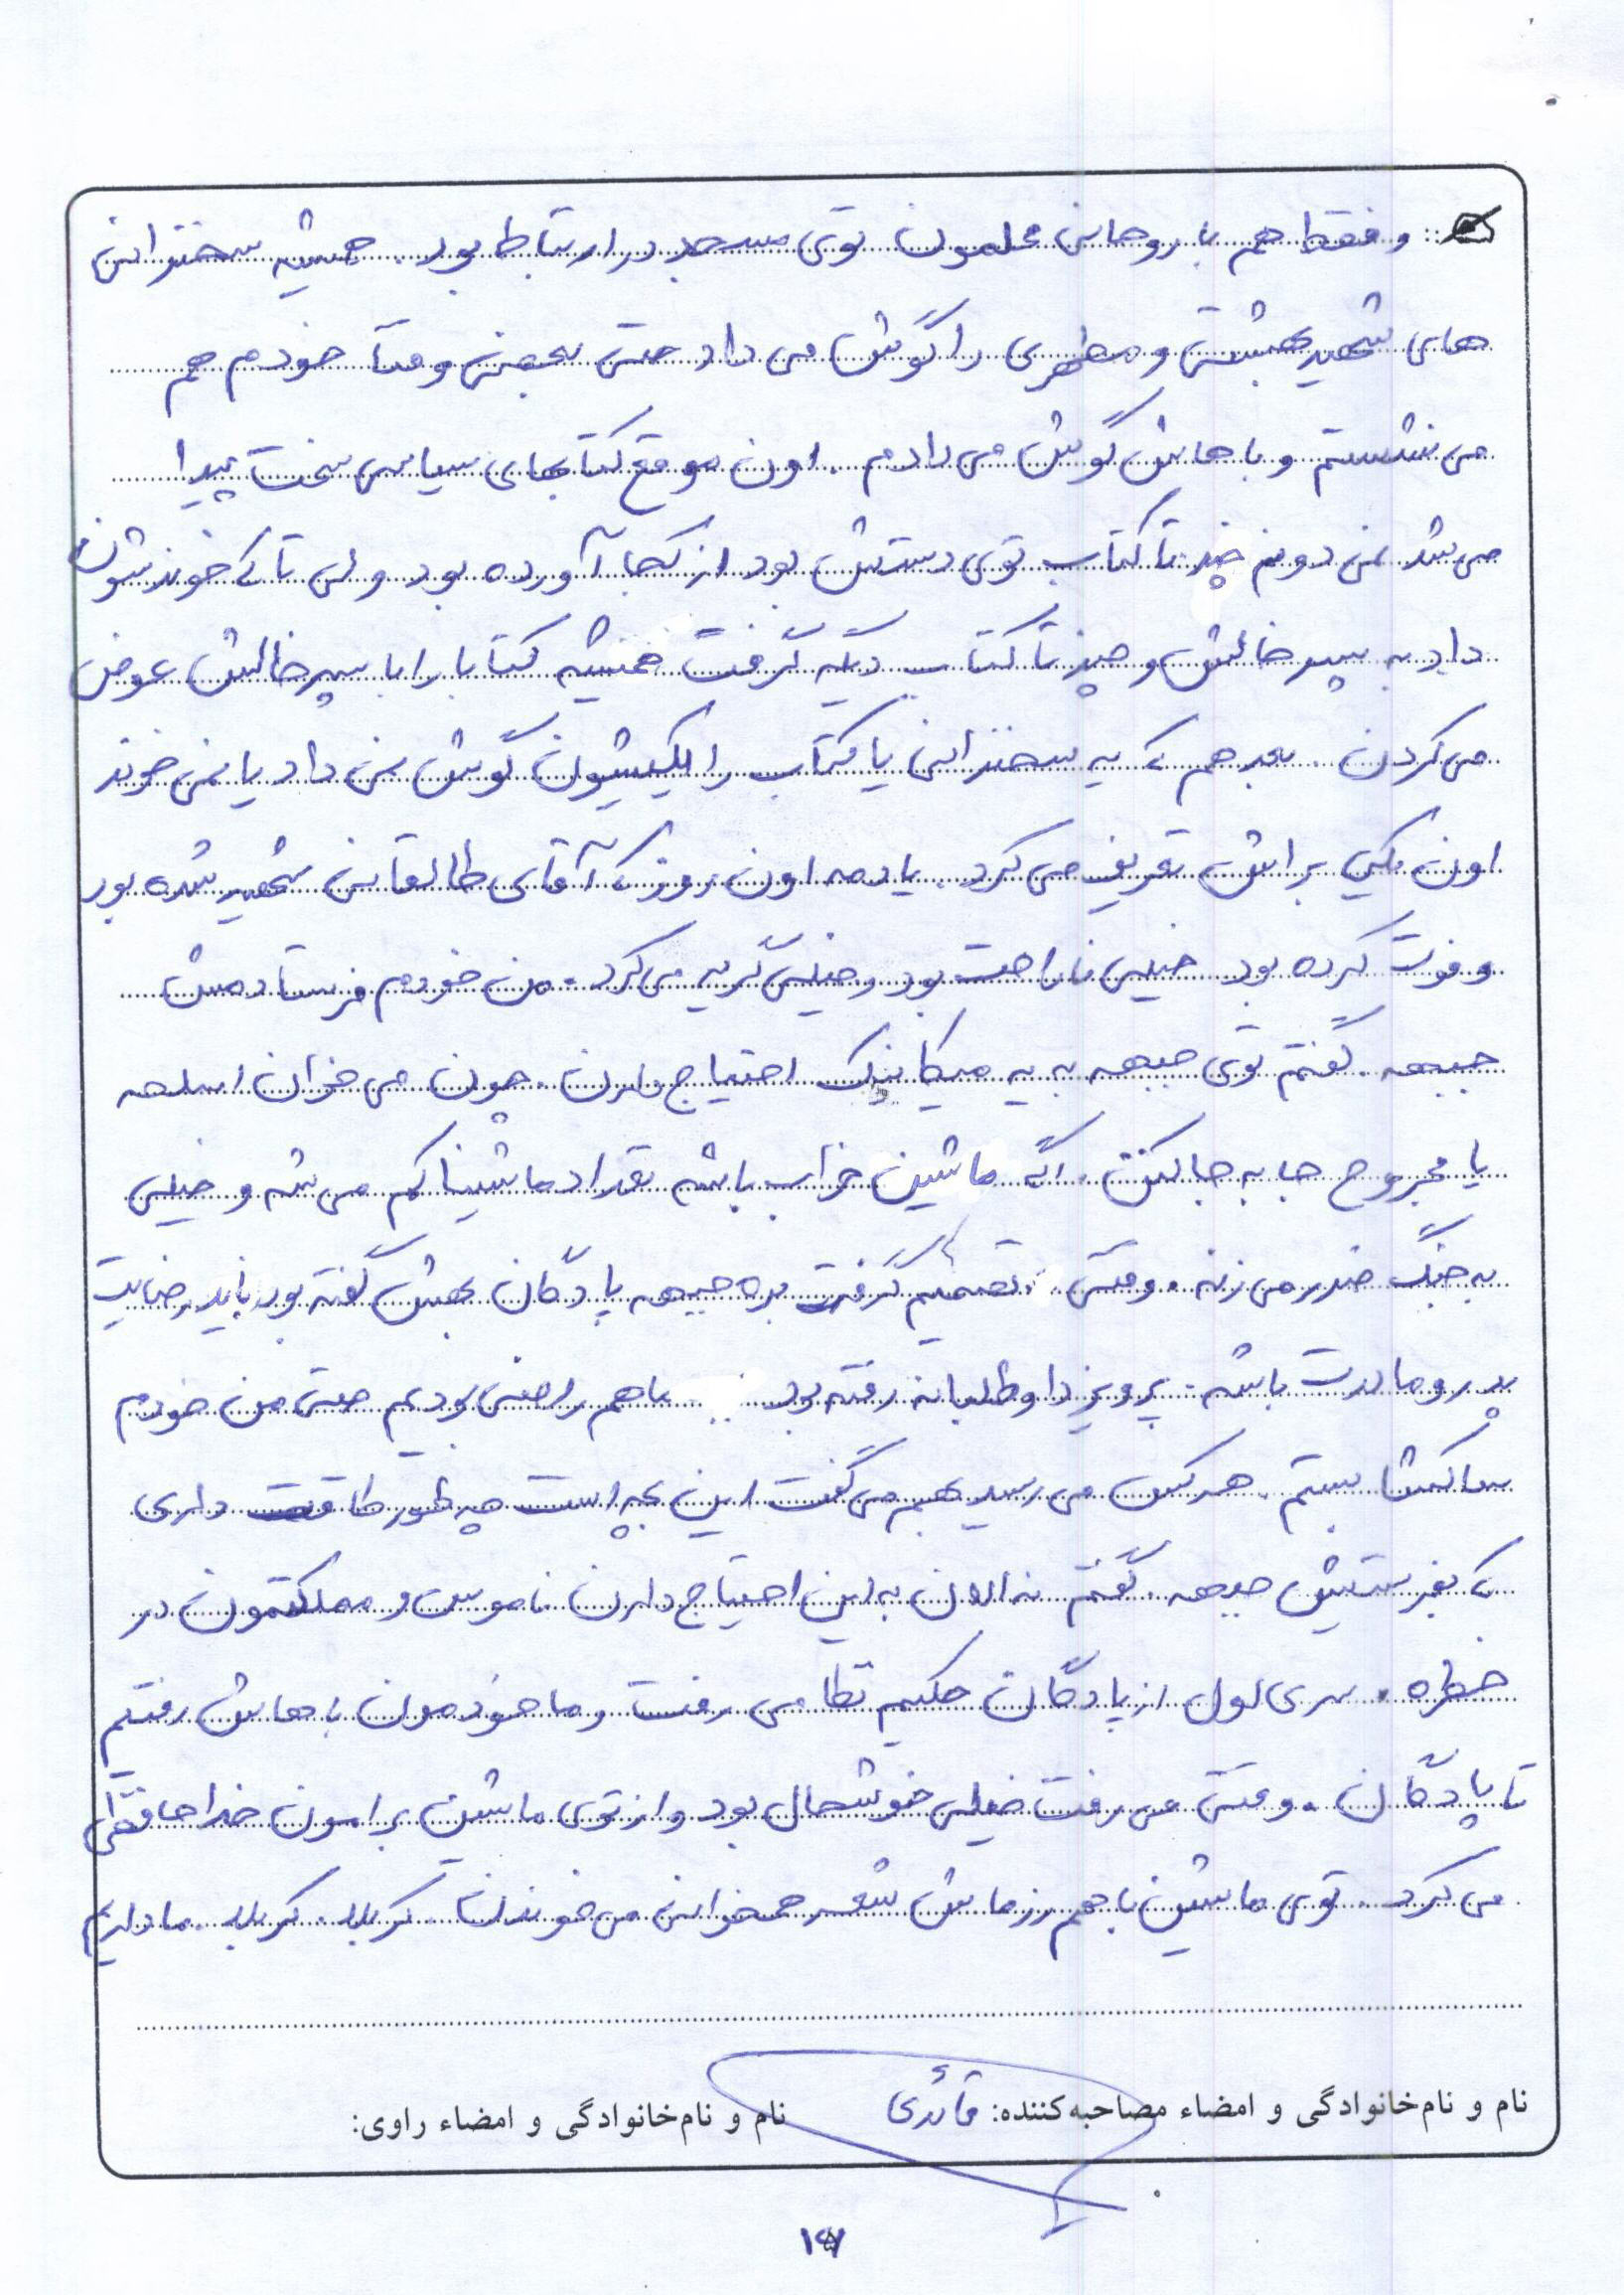 و فقط هم با روحانی محلمون توی مسجد در ارتباط بود. همیشه سخنرانی
های شهید بهشتی و مطهری را گوش می داد حتی بعضی وقتا خودم هم
می نشستم و باهاش گوش می دادم. اون موقع کتابهای سیاسی سخت پیدا
می شد نمی دونم چند تا کتاب توی دستش بود از کجا آورده بود ولی تا که خوندشون
داد به پسر خالش و چند تا کتاب دیگه گرفت همیشه کتابا را با پسرخالش عوض
می کردن. بعد هم که یه سخنرانی یا کتاب را یکیشون گوش نمی داد یا نمی خوند
اون یکی براش تعریف می کرد. یادمه اون روز که آقای طالقانی شهید شده بود
و فوت کرده بود خیلی ناراحت بود و خیلی گریه می کرد. من خودم فرستادمش
جبهه. گفتم توی جبهه به یه میکانیک احتیاج دارن. چون می خوان اسلحه
یا مجروح جا به جا کنن. اگه ماشین خراب باشه تعداد ماشینا کم می شه و خیلی
به جنگ ضرر می زنه. وقتی تصمیم گرفت بره جبهه پادگان بهش گفته بود باید رضایت
پدر و مادرت باشه. پرویز داوطلبانه رفته بود. ما هم راضی بودیم حتی من خودم
ساکشا بستم. هر کس می رسید بهم می گفت این بچه است چه طور طاقت داری
که بفرستیش جبهه. گفتم نه الان به این احتیاج دارن ناموس و مملکتمون در
خطره. سری اول از پادگان حکیم نظامی رفت و ما خودمون باهاش رفتیم
تا پادگان. وقتی می رفت خیلی خوشحال بود و از توی ماشین برامون خداحافظی
می کرد. توی ماشین با هم رزماش شعر همخوانی می خوندن کربلا. کربلا. ما داریم
نام و نام‌خانوادگی و امضاء مصاحبه‌کننده: قائدی
نام و نام‌خانوادگی و امضاء راوی: